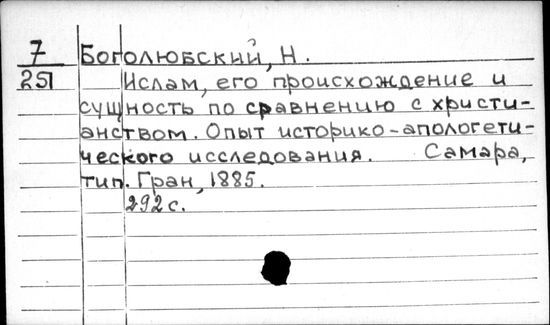 7 Боголюбский, Н.
251 Ислам, его происхождение и
сущность по сравнению с христи-
анством. Опыт историко-апологети-
ческого исследования. Самара,
тип. Гран, 1885.
292 с.